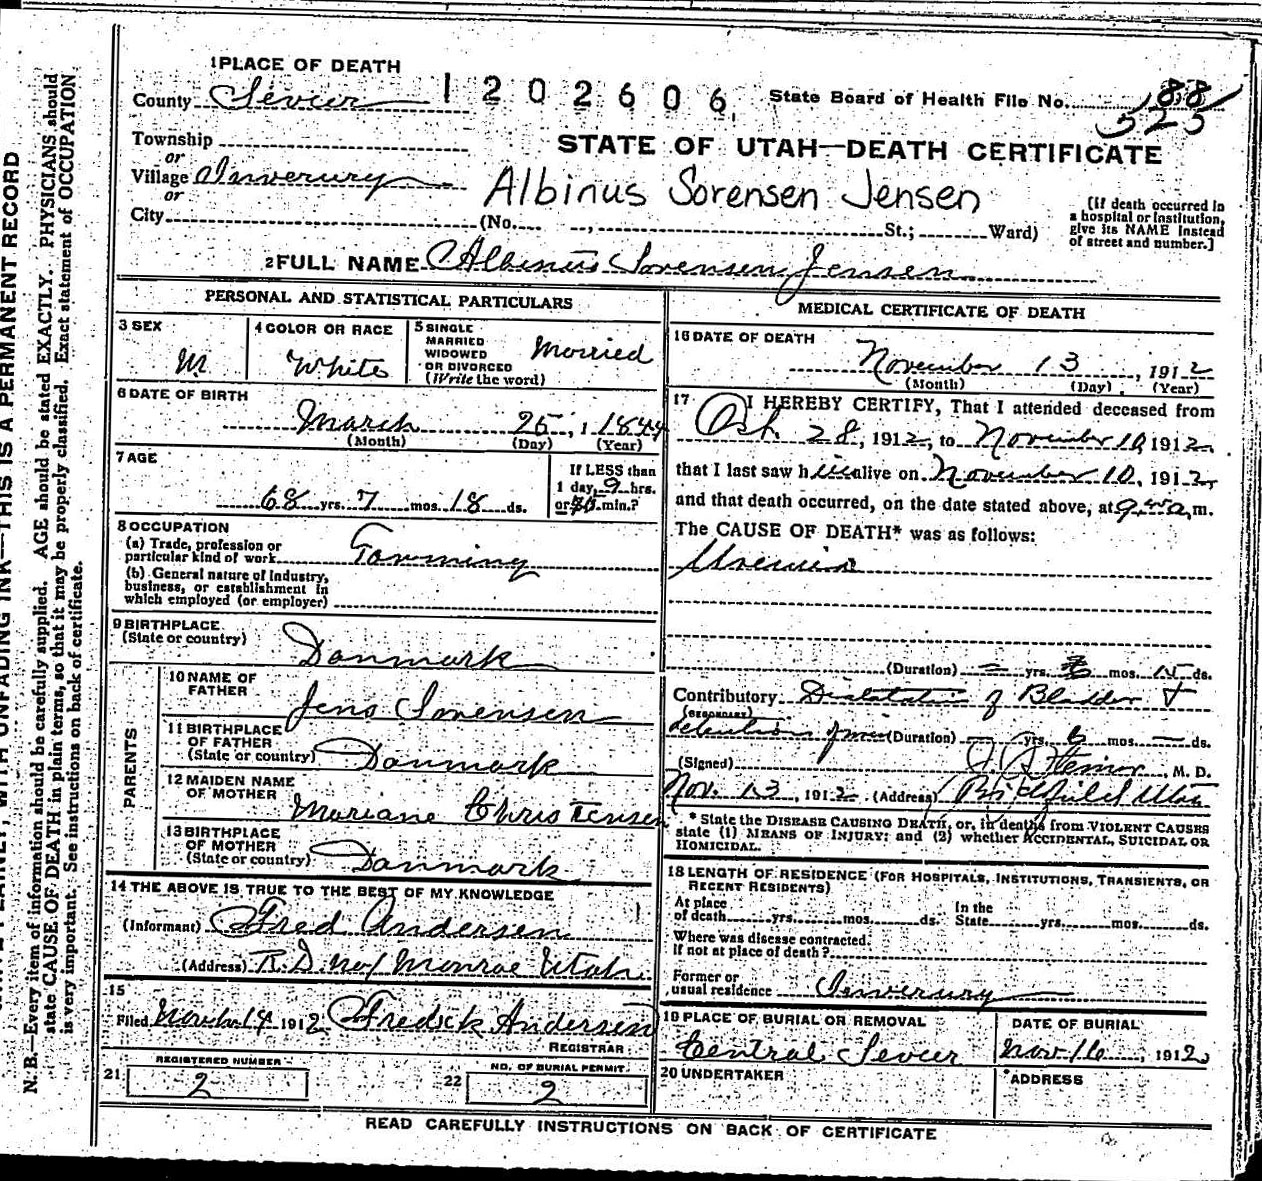 1 PLACE OF DEATH
County Sevier 1202606 State Board of Health File No. 188
525
Township
or
Village Inverury
or
STATE OF UTAH—DEATH CERTIFICATE
Albinus Sorensen Jensen
City (No. , St.; Ward)
[If death occurred in
a hospital or institution,
give its NAME instead
of street and number.]
2 FULL NAME Albinus Sorensen Jensen
PERSONAL AND STATISTICAL PARTICULARS
3 SEX M
4 COLOR OR RACE White
5 SINGLE
MARRIED
WIDOWED
OR DIVORCED
(Write the word) Married
6 DATE OF BIRTH
March 25, 1844
(Month) (Day) (Year)
7 AGE
68 yrs. 7 mos. 18 ds.
If LESS than
1 day, 9 hrs.
or min.?
8 OCCUPATION
(a) Trade, profession or
particular kind of work Farming
(b) General nature of Industry,
business, or establishment in
which employed (or employer)
9 BIRTHPLACE
(State or country) Danmark
PARENTS
10 NAME OF
FATHER Jens Sorensen
11 BIRTHPLACE
OF FATHER
(State or country) Danmark
12 MAIDEN NAME
OF MOTHER Mariane Christensen
13 BIRTHPLACE
OF MOTHER
(State or country) Danmark
14 THE ABOVE IS TRUE TO THE BEST OF MY KNOWLEDGE
(Informant) Fred Andersen
(Address) R.D. No 1 Monroe Utah
15
Filed Novbr 14 1912 Fredick Andersen
REGISTRAR
REGISTERED NUMBER
21 2
NO. OF BURIAL PERMIT
22 2
MEDICAL CERTIFICATE OF DEATH
16 DATE OF DEATH
November 13, 1912
(Month) (Day) (Year)
17 I HEREBY CERTIFY, That I attended deceased from
Oct. 28, 1912, to November 10, 1912
that I last saw him alive on November 10, 1912,
and that death occurred, on the date stated above, at 9 a.m.
The CAUSE OF DEATH* was as follows:
Uremia
(Duration) — yrs. mos. 15 ds.
Contributory Dilatation of Bladder +
(SECONDARY)
retention of urine (Duration) — yrs. 6 mos. — ds.
(Signed) , M. D.
Nov. 13, 1912 (Address) Richfield Utah
* State the DISEASE CAUSING DEATH, or, in deaths from VIOLENT CAUSES
state (1) MEANS OF INJURY; and (2) whether ACCIDENTAL, SUICIDAL OR
HOMICIDAL.
18 LENGTH OF RESIDENCE (FOR HOSPITALS, INSTITUTIONS, TRANSIENTS, OR
RECENT RESIDENTS)
At place
of death yrs. mos. ds.
In the
State yrs. mos. ds.
Where was disease contracted.
If not at place of death?
Former or
usual residence Inverury
19 PLACE OF BURIAL OR REMOVAL
Central Sevier
DATE OF BURIAL
Nov 16, 1912
20 UNDERTAKER
ADDRESS
READ CAREFULLY INSTRUCTIONS ON BACK OF CERTIFICATE
WITH UNFADING INK—THIS IS A PERMANENT RECORD
N. B.—Every item of information should be carefully supplied. AGE should be stated EXACTLY. PHYSICIANS should
state CAUSE OF DEATH in plain terms, so that it may be properly classified. Exact statement of OCCUPATION
is very important. See instructions on back of certificate.